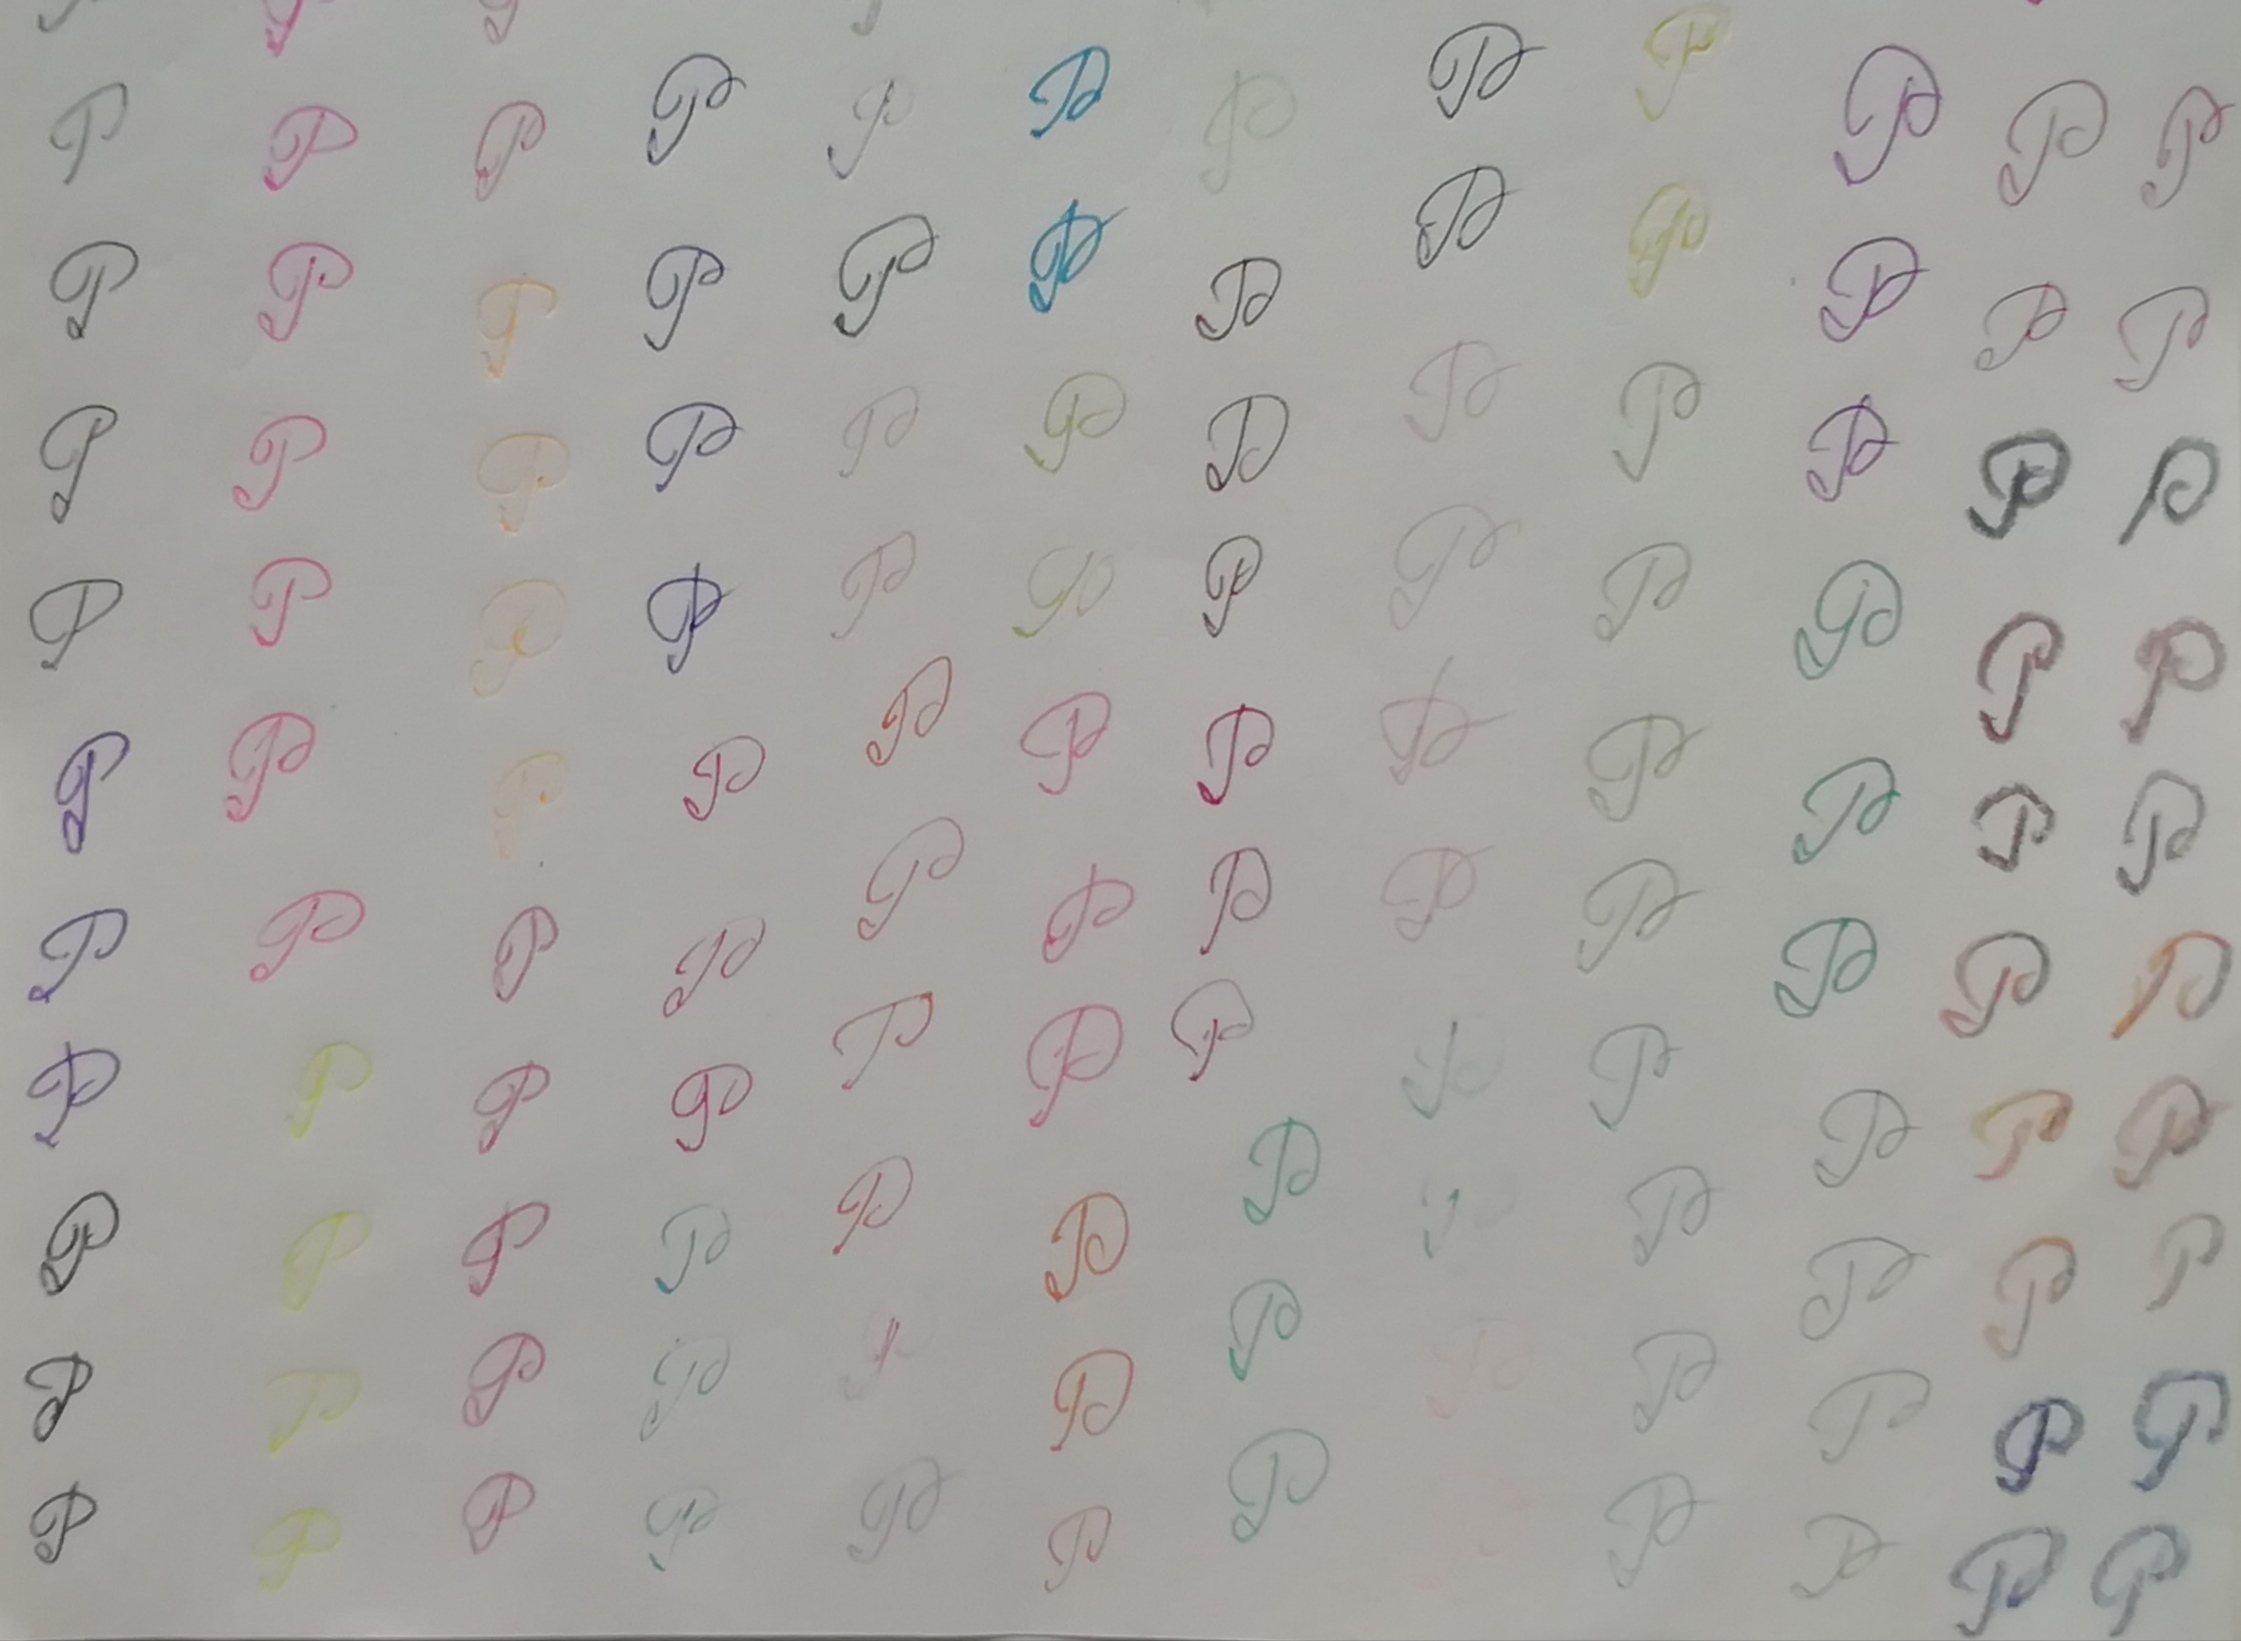 P P P P P P P P P P P P
P P P P P P P P P P P P
P P P P P P P P P P P P
P P P P P P P P P P P P
P P P P P P P P P P P P
P P P P P P P P P P P P
P P P P P P P P P P P P
P P P P P P P P P P P P
P P P P P P P P P P P P
P P P P P P P P P P P